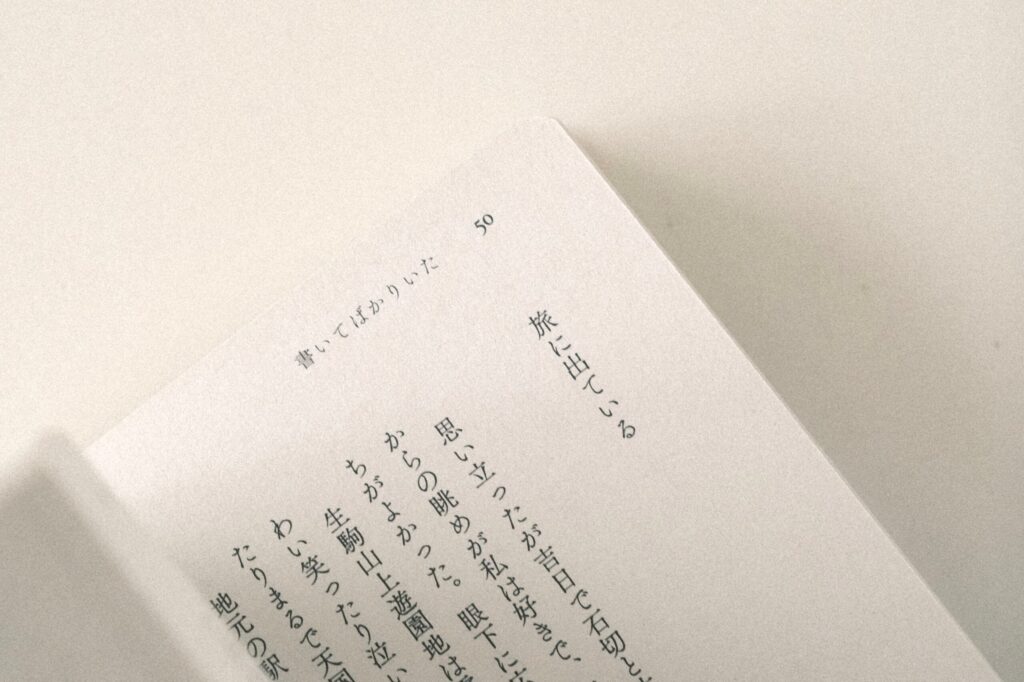 50
書いてばかりいた
旅に出ている
思い立ったが吉日で石切と
からの眺めが私は好きで、
ちがよかった。眼下に広
生駒山上遊園地は
わい笑ったり泣い
たりまるで天国
地元の駅